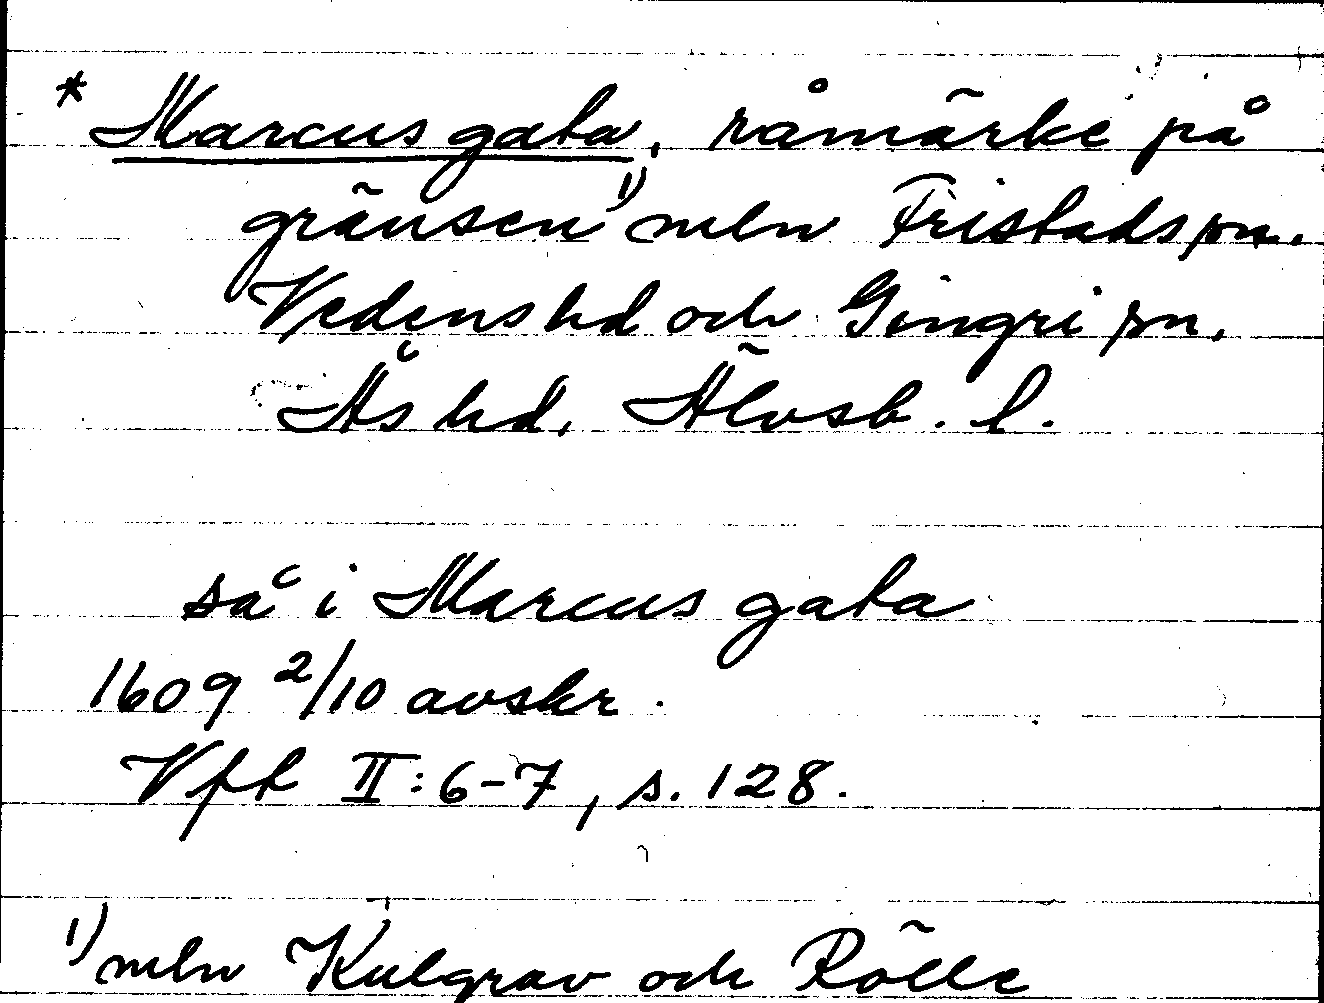 * Marcus gata, råmärke på
gränsen 1) mln Fristads sn.
Vedens hd och Gingri sn,
Ås hd, Älvsb. l.
så i Marcus gata
1609 2/10 avskr.
Vft II:6-7, s. 128.
1) mln Kulgrav och Rölle